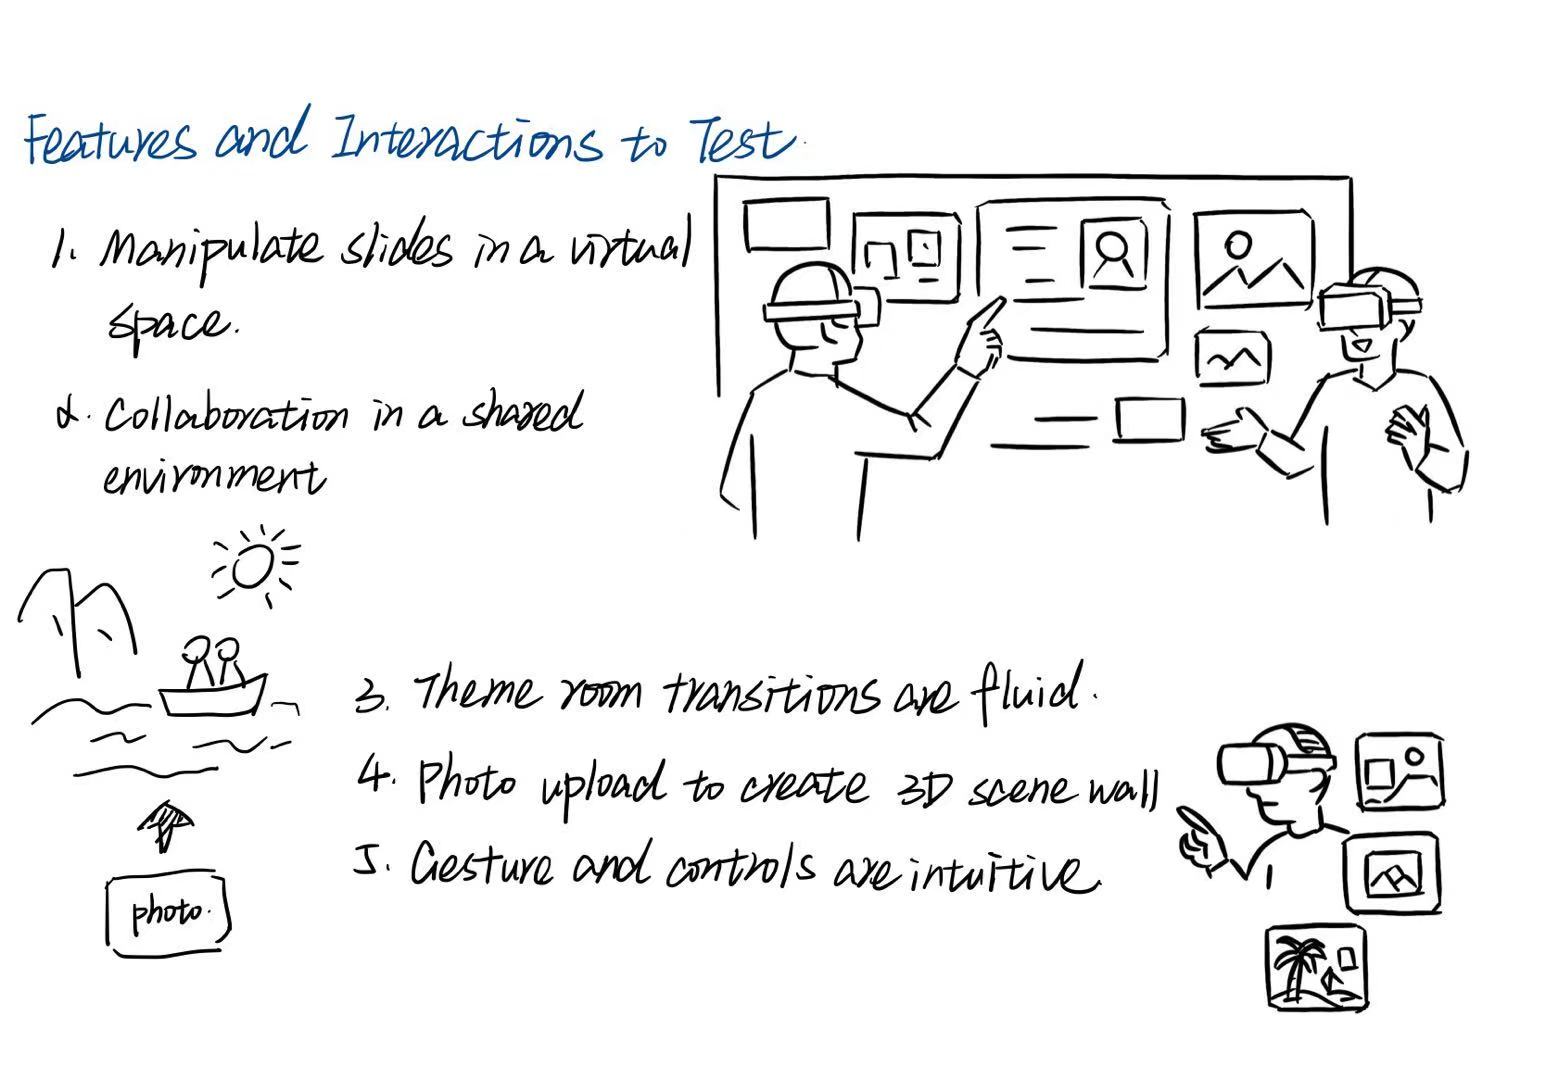 Features and Interactions to Test.
1. Manipulate slides in a virtual
space.
2. Collaboration in a shared
environment
3. Theme room transitions are fluid.
4. Photo upload to create 3D scene wall
5. Gesture and controls are intuitive.
photo.